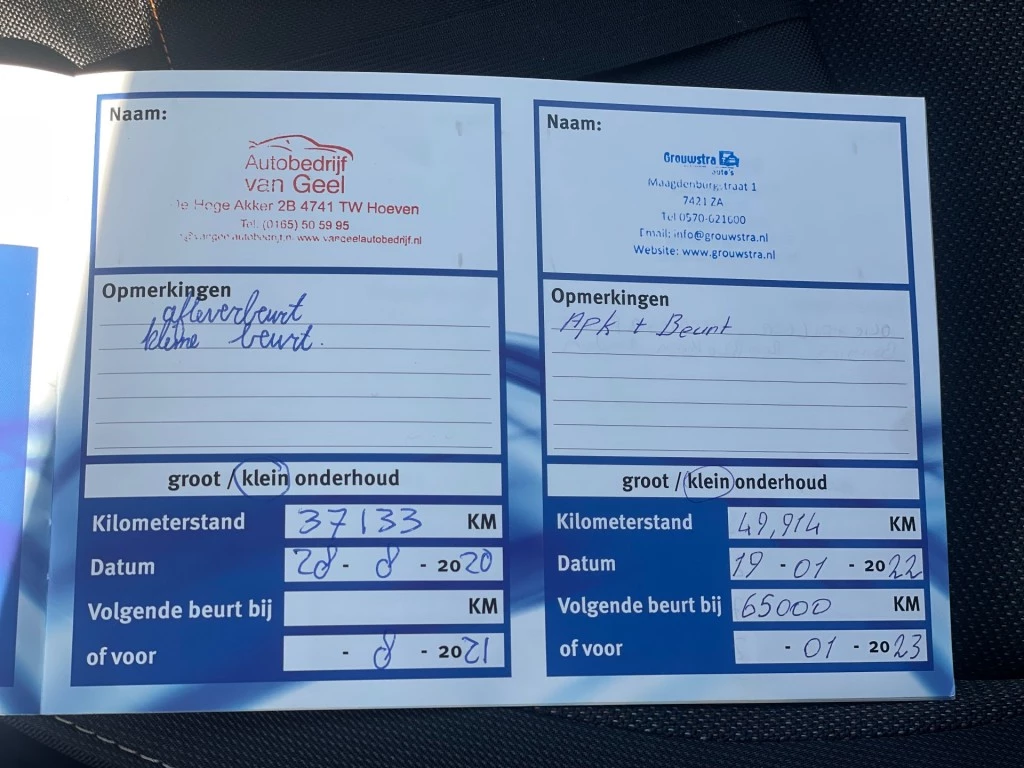 Naam:
Autobedrijf
van Geel
Hoge Akker 2B 4741 TW Hoeven
Tel: (0165) 50 59 95
www.vangeelautobedrijf.nl
Opmerkingen
afleverbeurt
kleine beurt.
groot / klein onderhoud
Kilometerstand 37133 KM
Datum 28 - 8 - 2020
Volgende beurt bij KM
of voor - 8 - 2021
Naam:
Grouwstra
auto's
Maagdenburgstraat 1
7421 ZA
Tel 0570-621600
Email: info@grouwstra.nl
Website: www.grouwstra.nl
Opmerkingen
Apk + Beurt
groot / klein onderhoud
Kilometerstand 49,914 KM
Datum 19 - 01 - 2022
Volgende beurt bij 65000 KM
of voor - 01 - 2023